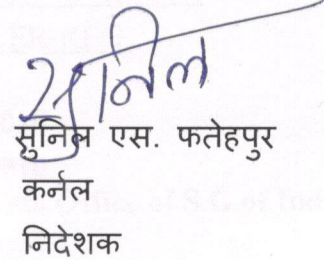 सुनिल
सुनिल एस. फतेहपुर
कर्नल
निदेशक